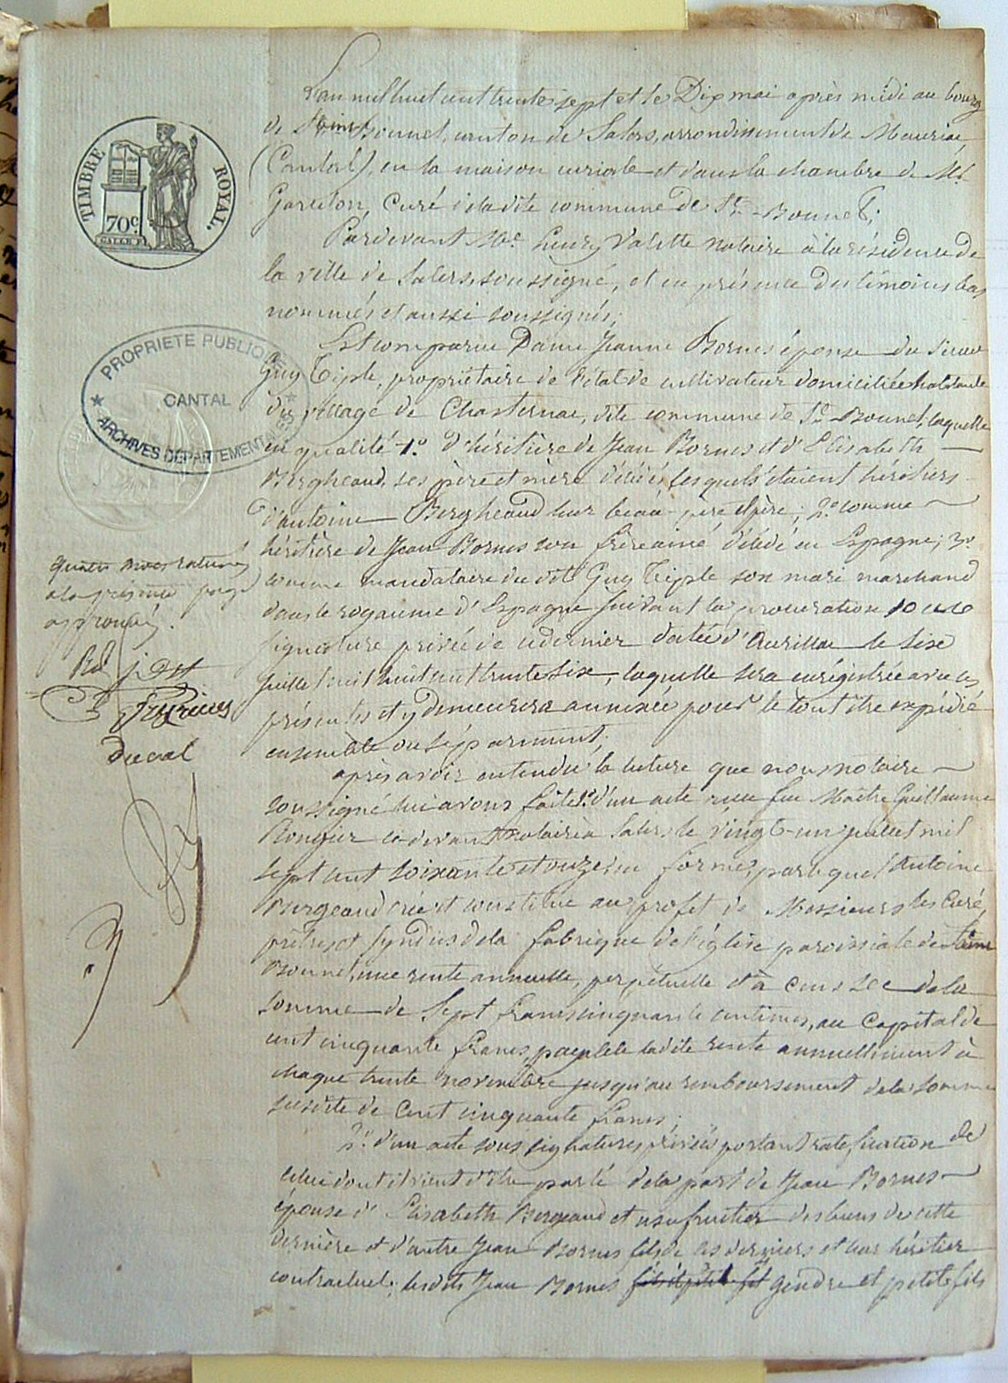 TIMBRE ROYAL.
70c
PROPRIETE PUBLIQUE
CANTAL
ARCHIVES DEPARTEMENT
L'an mil huit cent trente sept et le Dix mai après midi au bourg
de Saint Bonnet, canton de Salers, arrondissement de Mauriac
(Cantal), en la maison curiale et dans la chambre de Mr.
Curé de la dite commune de St. Bonnet;
Pardevant Me. Valette notaire à la résidence de
la ville de Salers, soussigné, et en présence des témoins bas
nommés et aussi soussignés;
Est comparue Dame Jeanne Bornes épouse du Sieur
Guy Tiple, propriétaire de l'état de cultivateur domiciliée habitante
du village de Chasternac, dite commune de St. Bonnet, laquelle
en qualité 1o. d'héritière de Jean Bornes et d'Elisabeth
Bergheaud, ses père et mère décédés, lesquels étaient héritiers
d'antoine Bergheaud leur beau-père et père; 2o. comme
héritière de Jean Bornes son frère ainé décédé en Espagne; 3o.
comme mandataire du dit Guy Tipple son mari marchand
dans le royaume d'Espagne suivant la procuration sous
signature privée de ce dernier datée d'Aurillac le six
juillet mil huit cent trente six, laquelle sera enrégistrée avec ces
présentes et y demeurera annexée pour le tout être expédié
ensemble ou séparément;
quatre
à la présente page
approuvés.
Duval
après avoir entendu la lecture que nous notaire
soussigné lui avons faite 1o. d'un acte reçu feu Maître Guillaume
ci-devant notaire à Salers le vingt-un juillet mil
sept cent soixante et onze, en forme, par lequel Antoine
Burgeaud créé et constitue au profit de Messieurs les Curé,
prêtres et syndics de la fabrique de l'église paroissiale de Saint
Bonnet, une rente annuelle, perpétuelle et à cens sec de la
somme de Sept francs cinquante centimes, au capital de
cent cinquante francs, payable ladite rente annuellement à
chaque trente novembre jusqu'au remboursement de la somme
susdite de Cent cinquante francs;
2o. d'un acte sous signatures privées portant ratification de
celui dont il vient d'être parlé de la part de Jean Bornes
épouse d'Elisabeth Bergeaud et usufruitier des biens de cette
dernière et d'autre Jean Bornes fils de ces derniers et leur héritier
contractuel; lesdits Jean Bornes gendre et petit fils